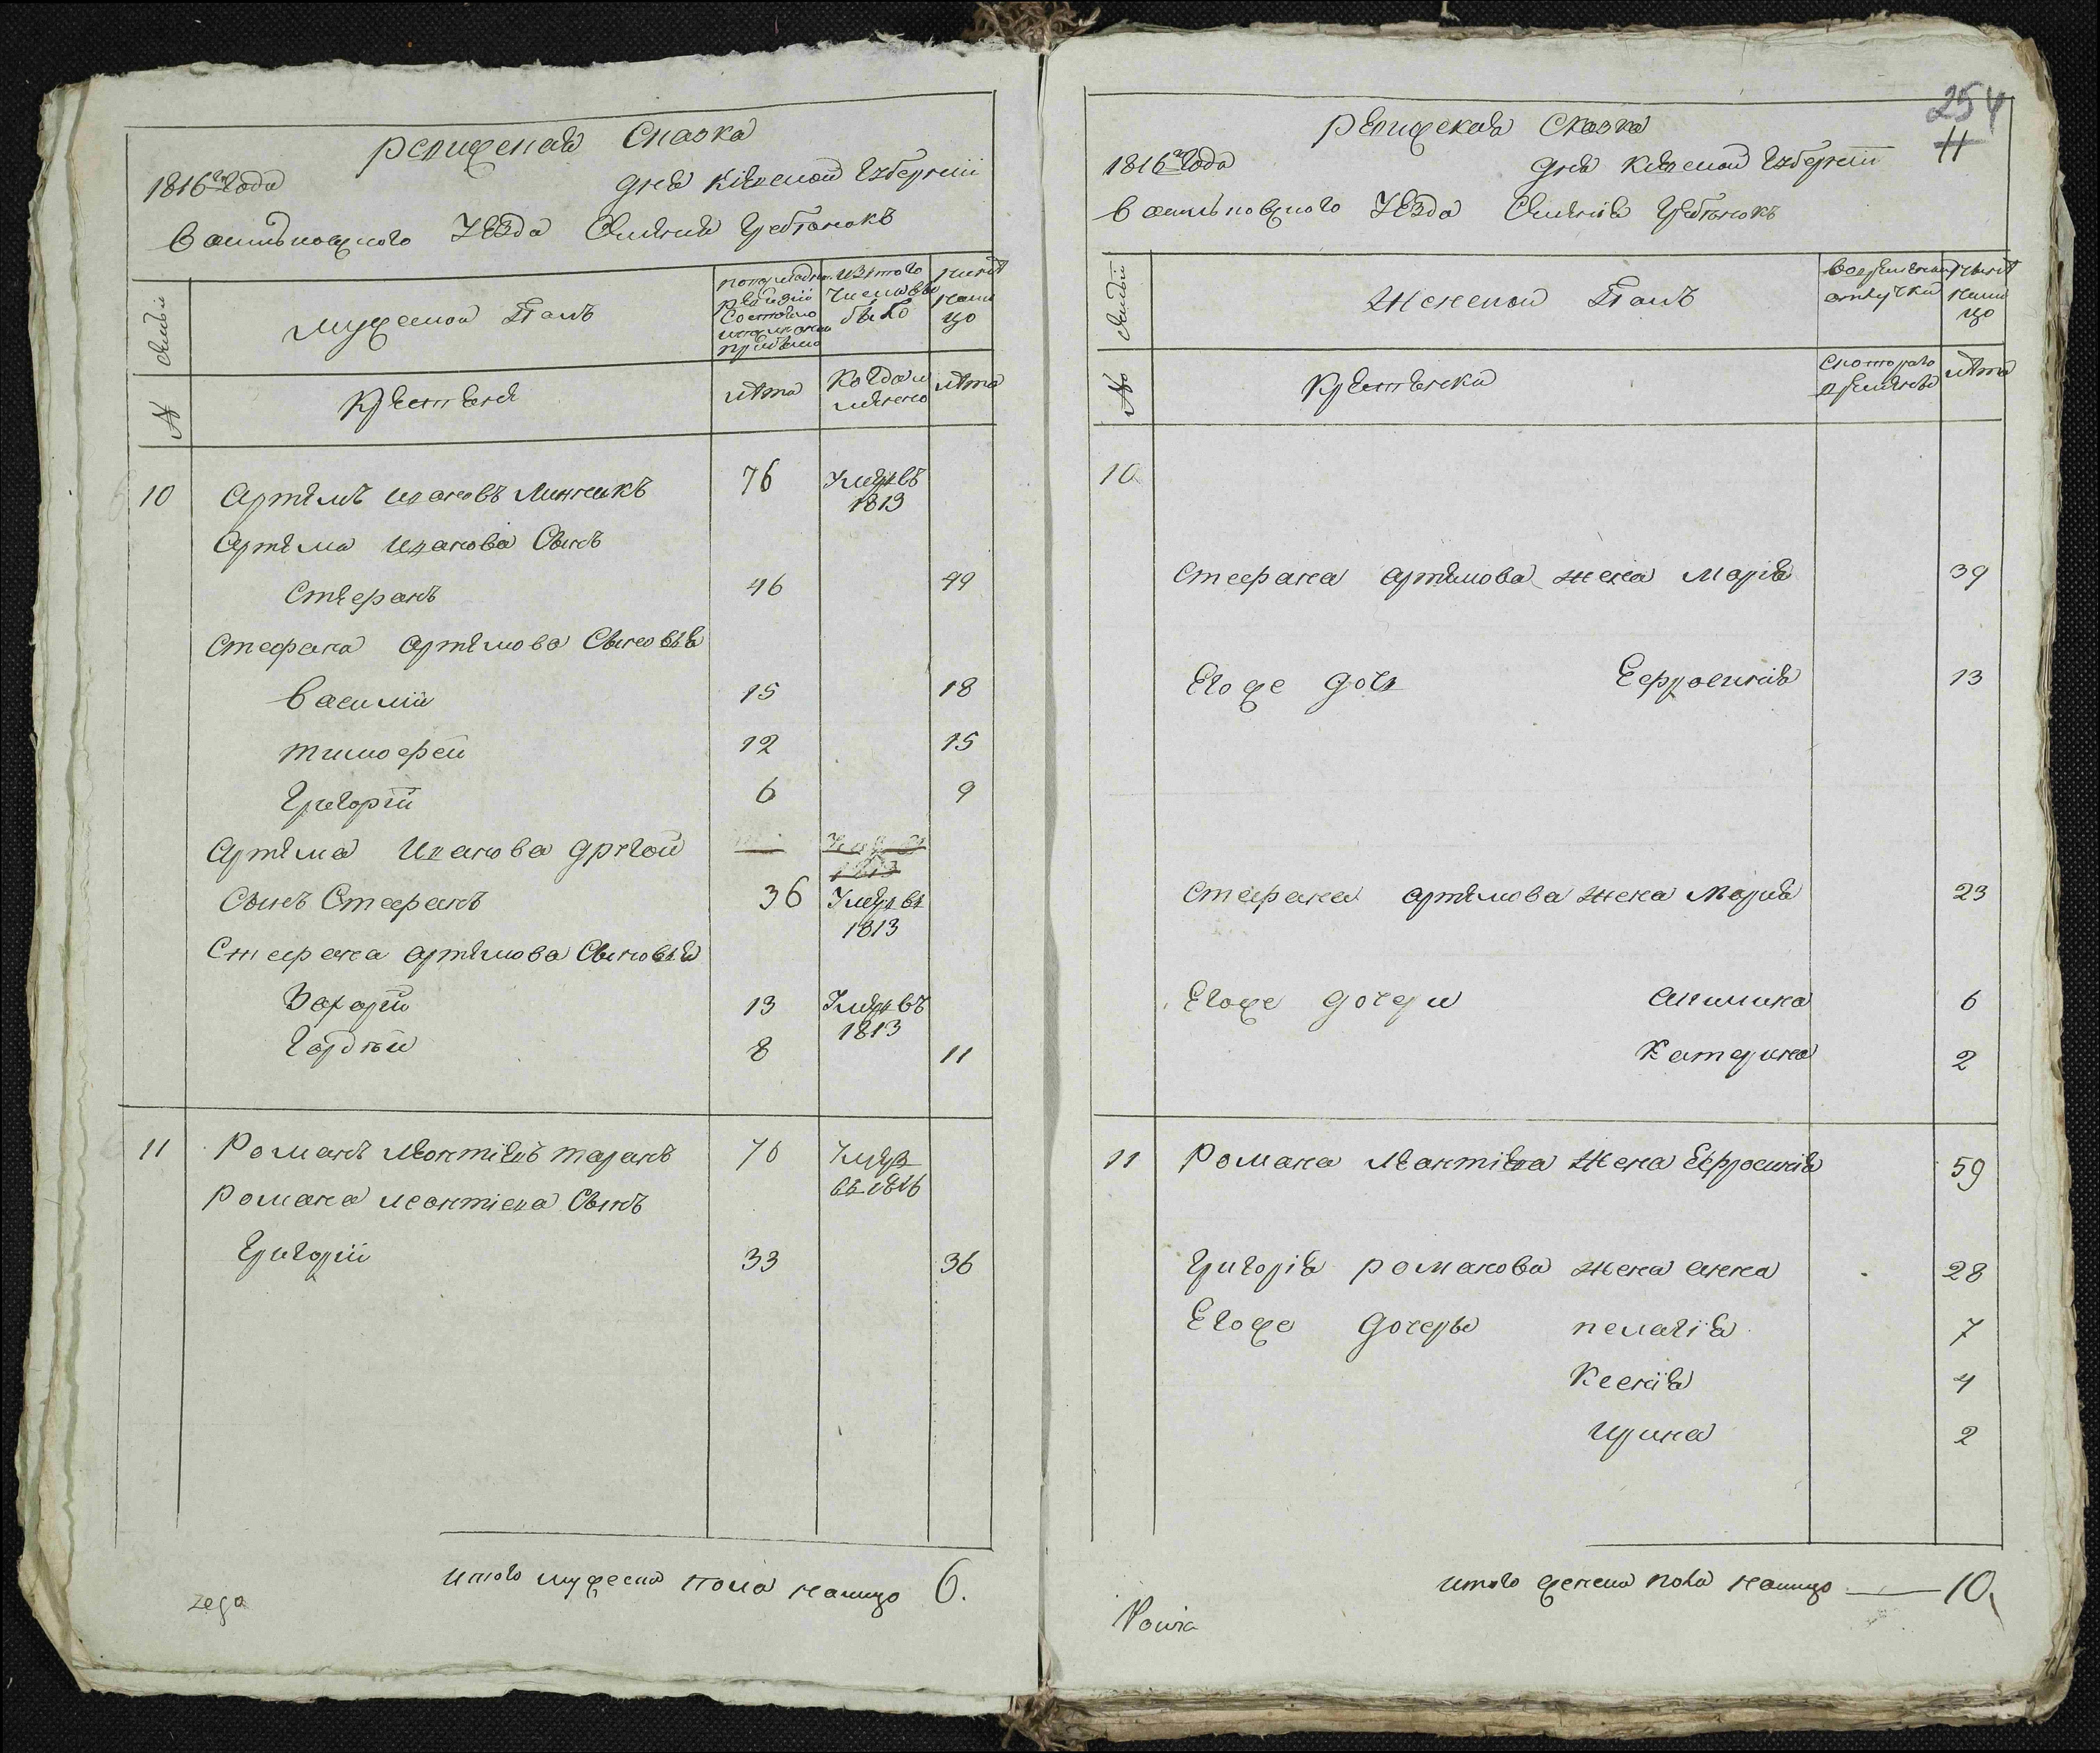 Ревижская Сказка
1816го Года Дня Кіевской Губерніи
Васильковского Уезда Селенія Гребюнокъ
Мужеской Полъ
Крестяня
№ Фамилій
По последней ревизіи состояло и после оной прибыло
Изъ того числа выбыло
Ныне на лицо
лета
Когда именно
лета
10 Артемъ Ивановъ Линникъ 76 Умеръ въ 1813
Артема Иванова Сынъ
Стефанъ 46 49
Стефана Артемова Сыновья
Василій 15 18
Тимофей 12 15
Григорій 6 9
Артема Иванова другой
Сынъ Стефанъ 36 Умеръ въ 1813
Стефана Артемова Сыновья
Захарій 13 Умеръ въ 1813
Гордей 8 11
11 Романъ Леонтіевъ Таранъ 70 Умер
Романа Леонтіева Сынъ
Григорій 33 36
Итого мужеска пола налицо 6.
254
11
Ревижская Сказка
1816го Года Дня Кіевской Губерніи
Васильковского Уезда Селенія Гребюнокъ
Женской Полъ
Крестянки
№ Фамилій
Во временной отлучки
Ныне на лицо
С которого времени
лета
10
Стефана Артемова жена Марія 39
Его же дочь Ефросинія 13
Стефана Артемова жена Марія 23
Его же дочери Акилина 6
Катерина 2
11 Романа Леонтіева жена Ефросинія 59
Григорія Романова жена Анна 28
Его же дочеры Пелагія 7
Ксенія 4
Ирина 2
Итого женска пола налицо — 10